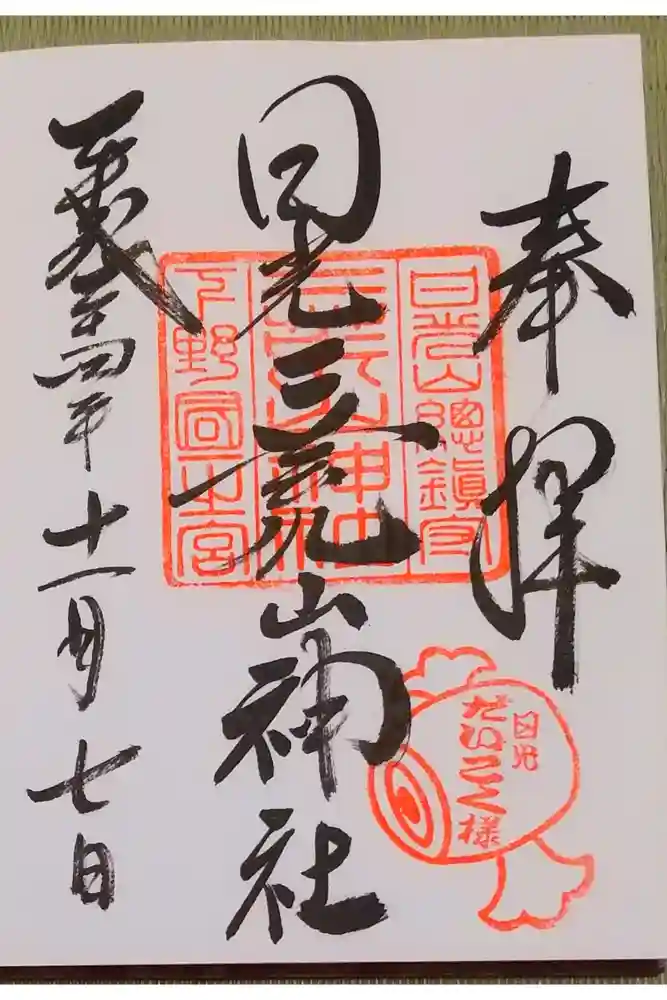 奉拝
日光山總鎮守
日光二荒山神社
二荒山神社
下野國一之宮
平成二十四年十一月七日
日光
だいこく様